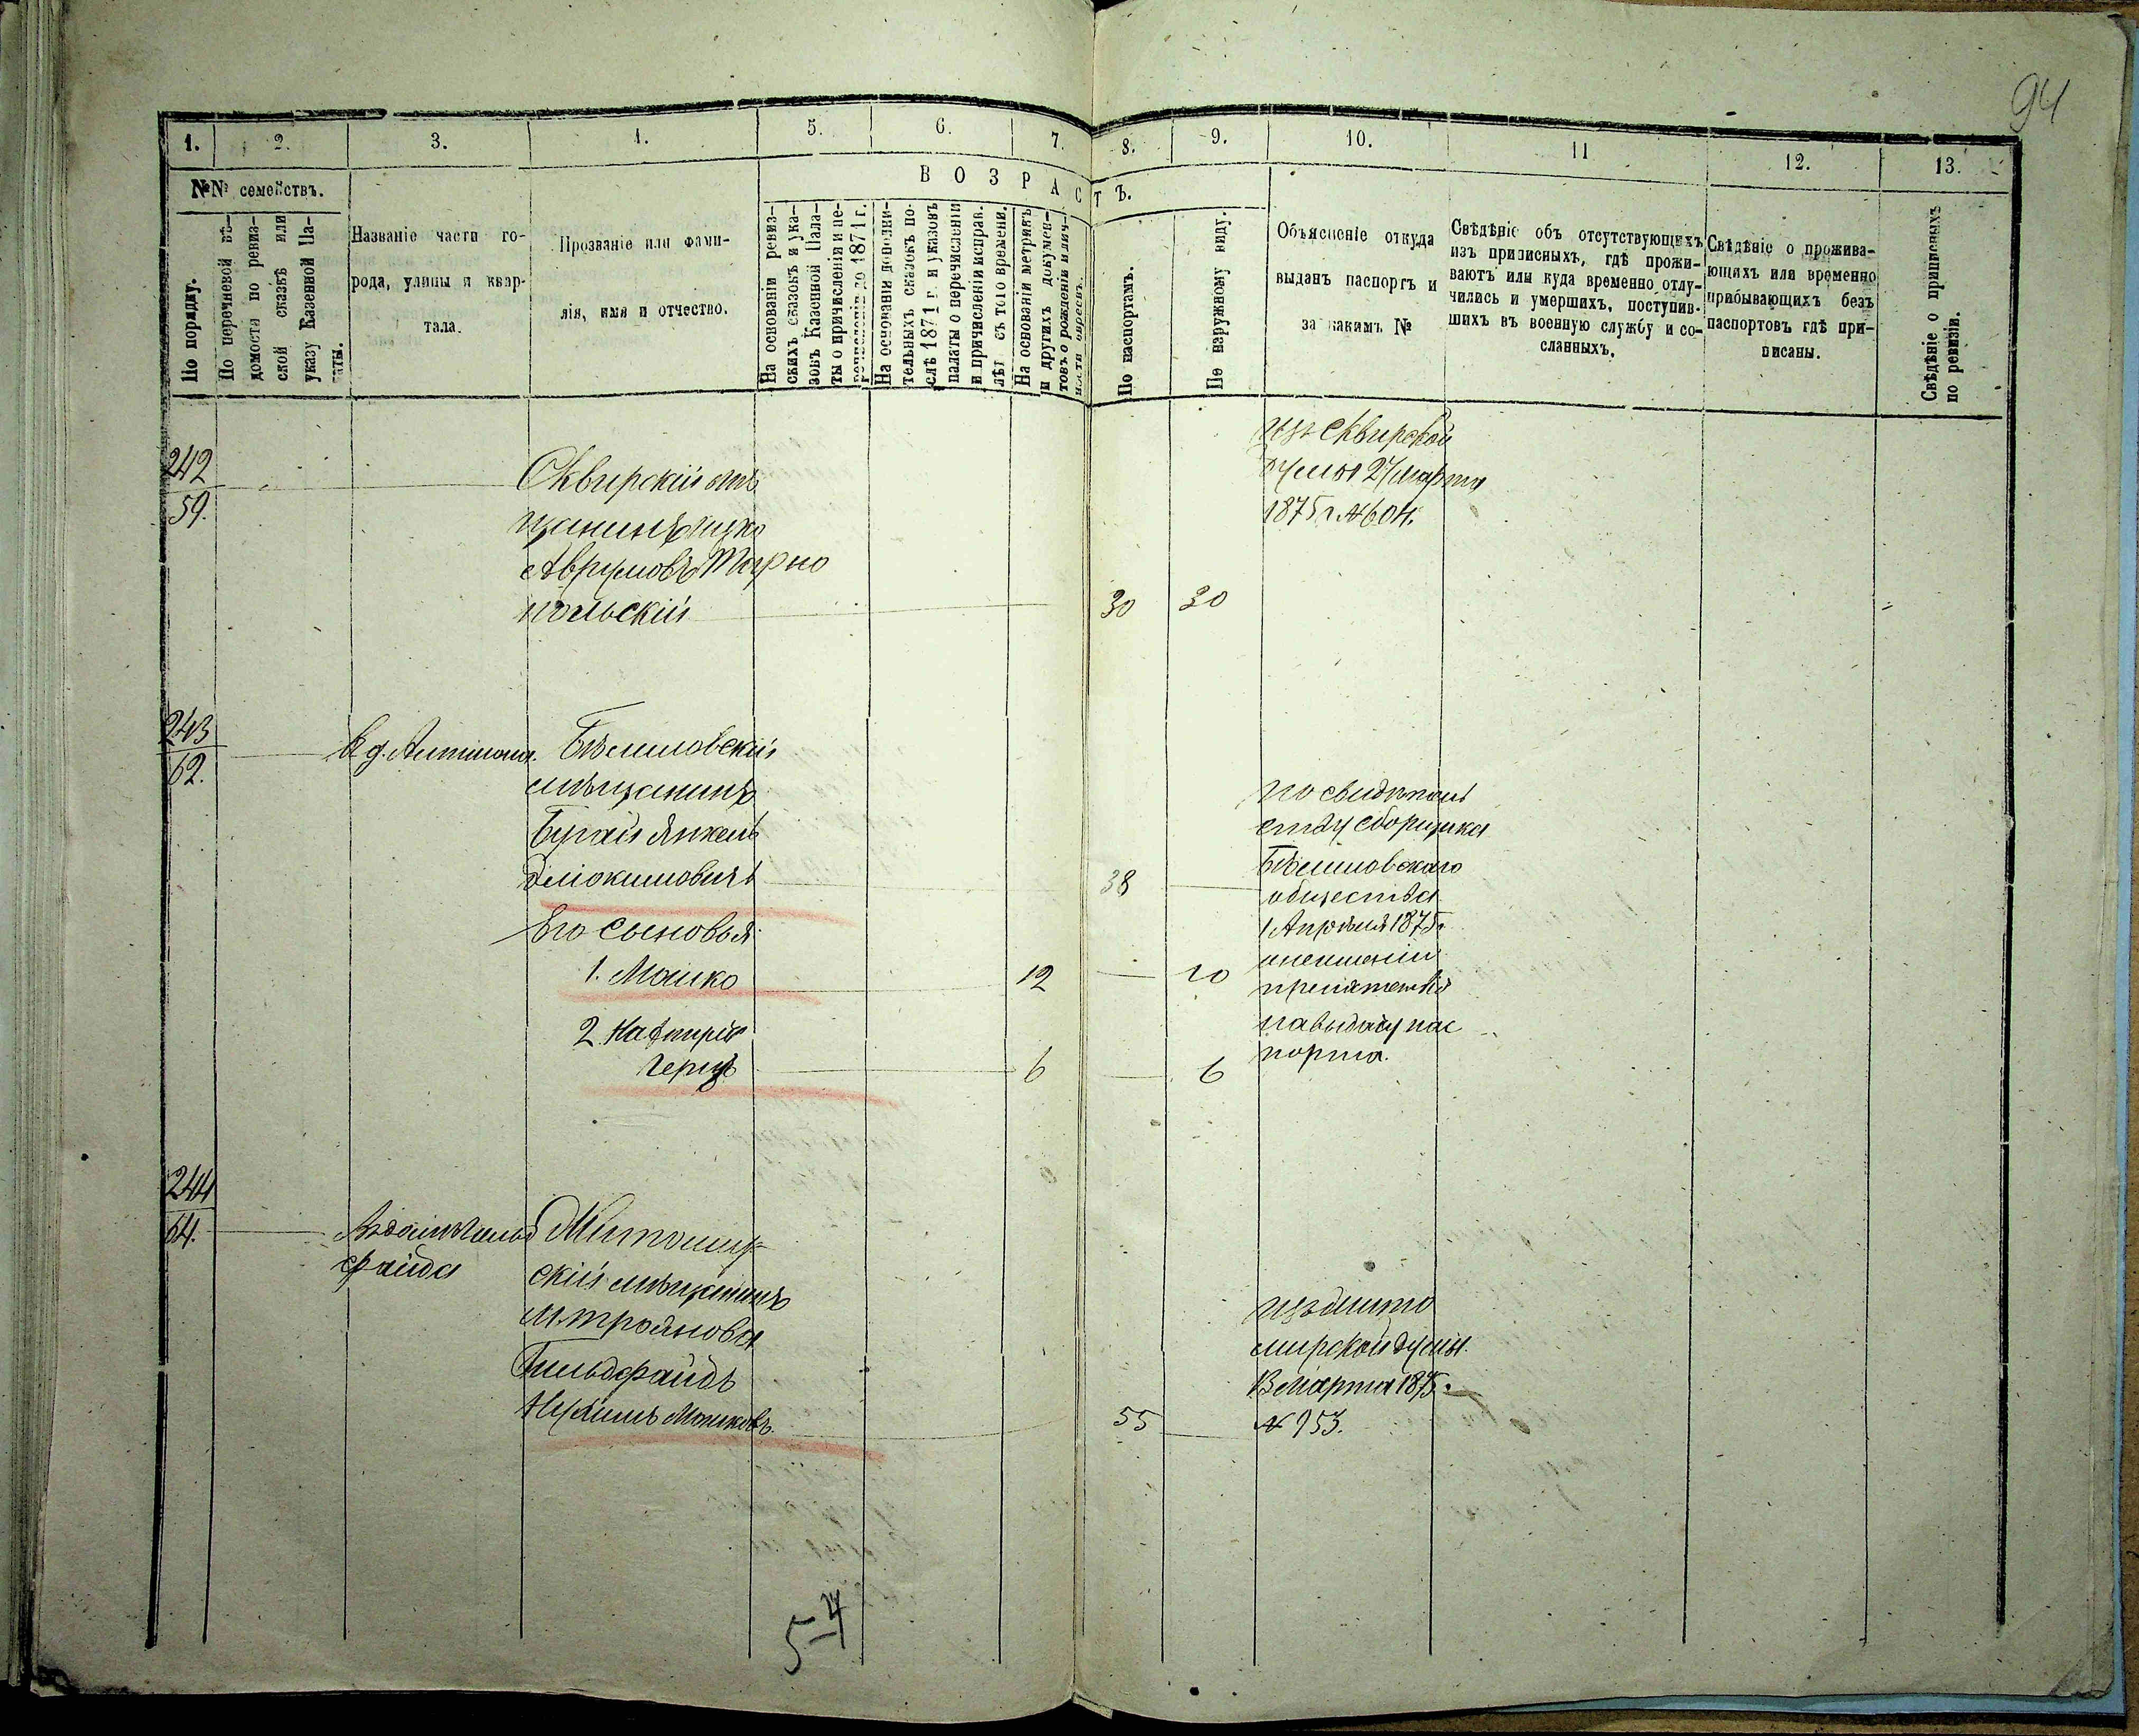 94
1. 2. 3. 4. 5. 6. 7. 8. 9. 10. 11 12. 13.
№№ семействъ.
По порядку.
По перечневой вѣ-
домости по ревиз-
ской сказкѣ или
указу Казенной Па-
латы.
Названіе части го-
рода, улицы и квар-
тала.
Прозваніе или фами-
лія, имя и отчество.
ВОЗРАСТЪ.
На основаніи ревиз-
скихъ сказокъ и ука-
зовъ Казенной Пала-
ты о причисленіи и пе-
речисленіи до 1871 г.
На основаніи дополни-
тельныхъ сказокъ по-
слѣ 1871 г. и указовъ
палаты о перечисленіи
и причисленіи исправ.
лѣт съ того времени.
На основаніи метрикъ
и другихъ докумен-
товъ о рожденіи и лич-
ности евреевъ.
По паспортамъ.
По наружному виду.
Объясненіе откуда
выданъ паспортъ и
за какимъ №
Свѣдѣніе объ отсутствующихъ
изъ приписныхъ, гдѣ прожи-
ваютъ или куда временно отлу-
чились и умершихъ, поступив-
шихъ въ военную службу и со-
сланныхъ.
Свѣдѣніе о прожива-
ющихъ или временно
прибывающихъ безъ
паспортовъ гдѣ при-
писаны.
Свѣдѣніе о приписныхъ
по ревизіи.
242
59.
Сквирскій мѣ
щанинъ Ицко
Аврумовъ Тарно
польскій
30 30
изъ Сквирской
думы 27 марта
1875 г. № 604.
243
62.
Бѣлиловскій
мѣщанинъ
Бугай Янкель
38
Его сыновья
1. Мошко
12 10
2. Нафтула
Герцъ
6 6
по свидѣтель
ству сборщика
Бѣлиловскаго
общества
1 Апрѣля 1875 г.
препятствія
на выдачу пас
порта.
244
64.
Житомир
скій мѣщанинъ
м. Троянова
Гильдфайдъ
Мошковъ.
55
изъ Жито
мирской думы.
13 Марта 1875.
№ 953.
5-4